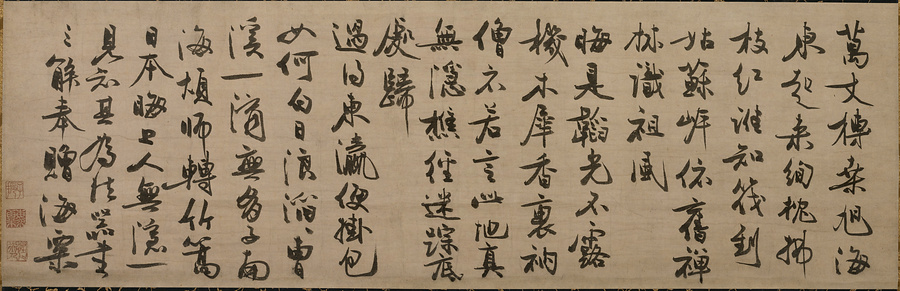 萬丈榑桑旭海
東起來絢拂
枝紅誰知筏到
姑蘇岸依舊禪
林識祖風
晦是韜光不露
機木犀香裏衲
僧衣若言此地真
無隱樵徑迷踪底
處歸
過得東瀛便掛包
如何白日浪滔〻曹
溪一滴無多子南
海煩師轉竹篙
日本晦上人無隱一
見知其為法器書
三解奉贈海粟